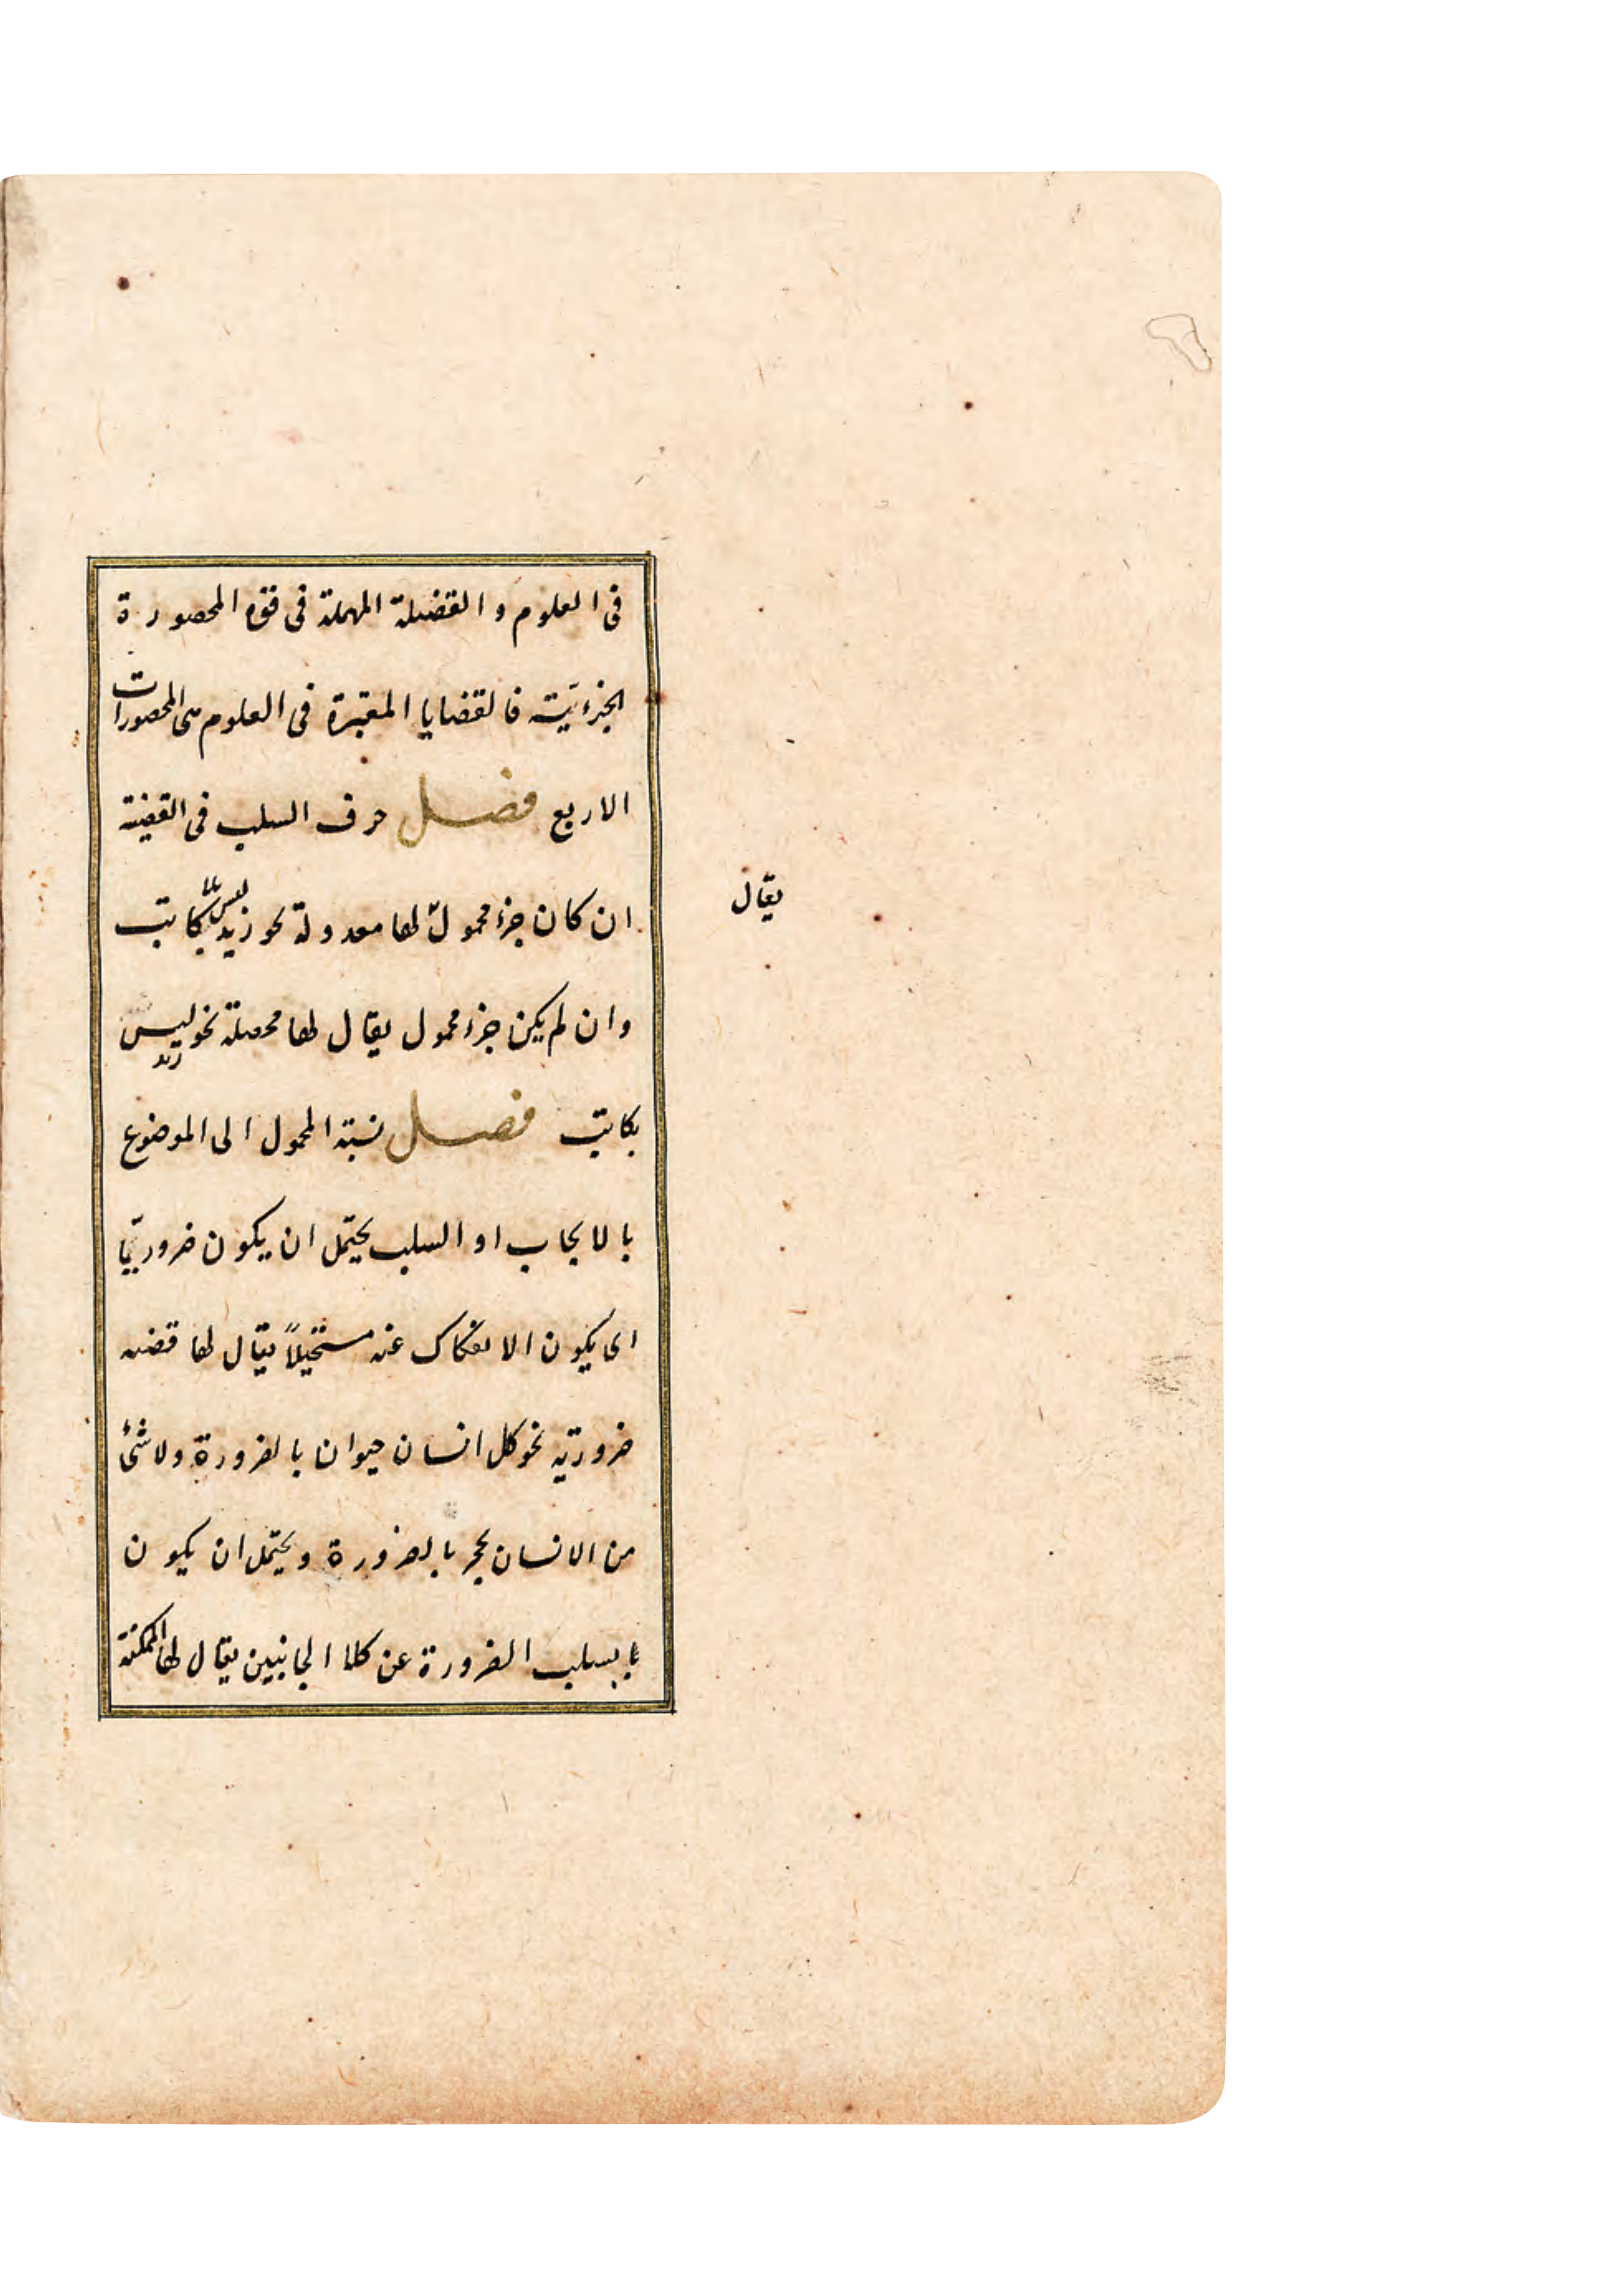 فى العلوم والقضيلة المهملة فى قوه المحصورة
الجزءيّته فالقضايا المعتبرة فى العلوم هى المحصورات
الاربع فصل حرف السلب فى القضيته
ان كان جزء محمول لها معدولة نحو زيد ليس بكاتب
يقال
وان لم يكن جزء محمول يقال لها محصلة نحو ليس زيد
بكاتب فصل نسبته المحمول الى الموضوع
بالايجاب او السلب يحتمل ان يكون ضروريّا
اى يكون الانفكاك عنه مستحيلاً يقال لها قضيه
ضروريّه نحو كل انسان حيوان بالضرورة ولا شئ
من الانسان بحجر بالضرورة ويحتمل ان يكون
بسلب الضرورة عن كلا الجانبين يقال لها الممكنة